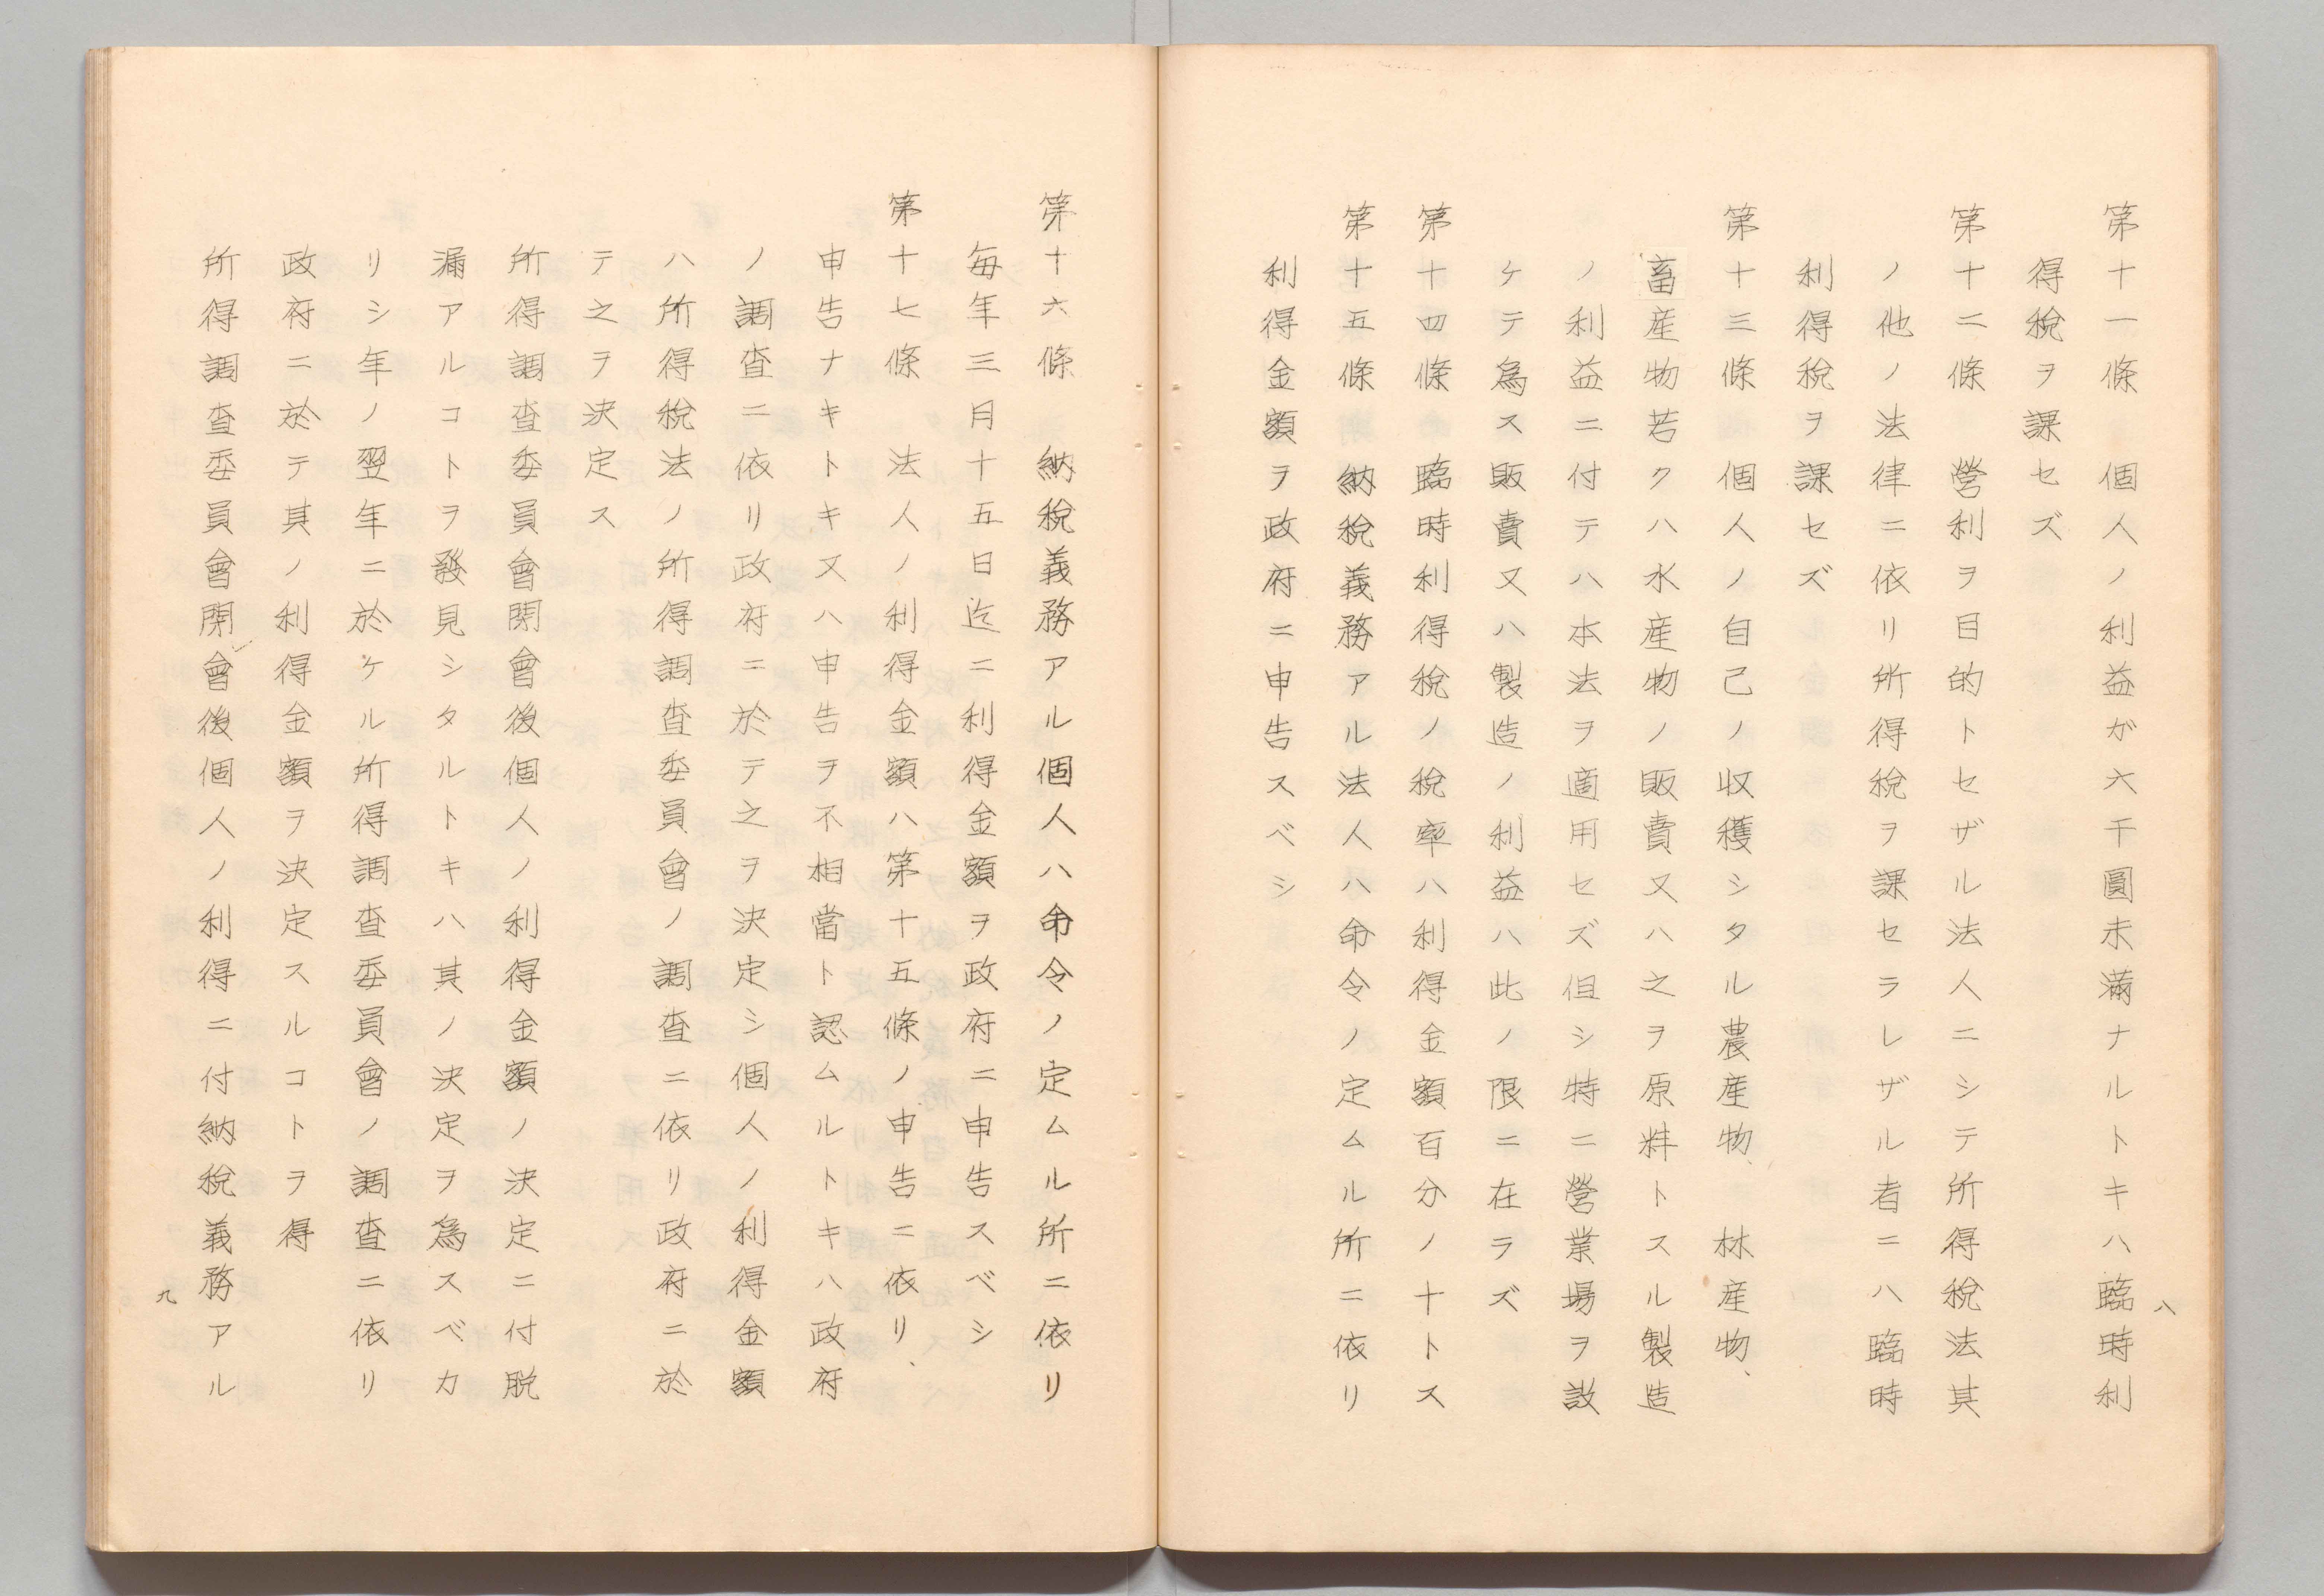 第十一條　個人ノ利益ガ六千圓未滿ナルトキハ臨時利
得稅ヲ課セズ
第十二條　營利ヲ目的トセザル法人ニシテ所得稅法其
ノ他ノ法律ニ依リ所得稅ヲ課セラレザル者ニハ臨時
利得稅ヲ課セズ
第十三條　個人ノ自己ノ収穫シタル農産物、林産物、
畜産物若クハ水産物ノ販賣又ハ之ヲ原料トスル製造
ノ利益ニ付テハ本法ヲ適用セズ但シ特ニ營業場ヲ設
ケテ爲ス販賣又ハ製造ノ利益ハ此ノ限ニ在ラズ
第十四條　臨時利得稅ノ稅率ハ利得金額百分ノ十トス
第十五條　納稅義務アル法人ハ命令ノ定ムル所ニ依リ
利得金額ヲ政府ニ申告スベシ
八
第十六條　納稅義務アル個人ハ命令ノ定ムル所ニ依リ
每年三月十五日迄ニ利得金額ヲ政府ニ申告スベシ
第十七條　法人ノ利得金額ハ第十五條ノ申告ニ依リ、
申告ナキトキ又ハ申告ヲ不相當ト認ムルトキハ政府
ノ調査ニ依リ政府ニ於テ之ヲ決定シ個人ノ利得金額
ハ所得稅法ノ所得調査委員會ノ調査ニ依リ政府ニ於
テ之ヲ決定ス
所得調査委員會閉會後個人ノ利得金額ノ決定ニ付脫
漏アルコトヲ發見シタルトキハ其ノ決定ヲ爲スベカ
リシ年ノ翌年ニ於ケル所得調査委員會ノ調査ニ依リ
政府ニ於テ其ノ利得金額ヲ決定スルコトヲ得
所得調査委員會閉會後個人ノ利得ニ付納稅義務アル
九